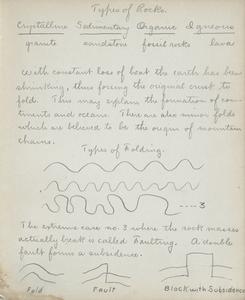 Types of Rocks.
Crystalline Sedimentary Organic Igneous
granite sandstone fossil rocks lava
With constant loss of heat the earth has been
shrinking, thus forcing the original crust to
fold. This may explain the formation of con-
tinents and oceans. There are also minor folds
which are believed to be the origin of mountain
chains.
Types of Folding.
3
The extreme case no. 3 where the rock masses
actually break is called Faulting. A double
fault forms a subsidence.
Fold Fault Block with Subsidence